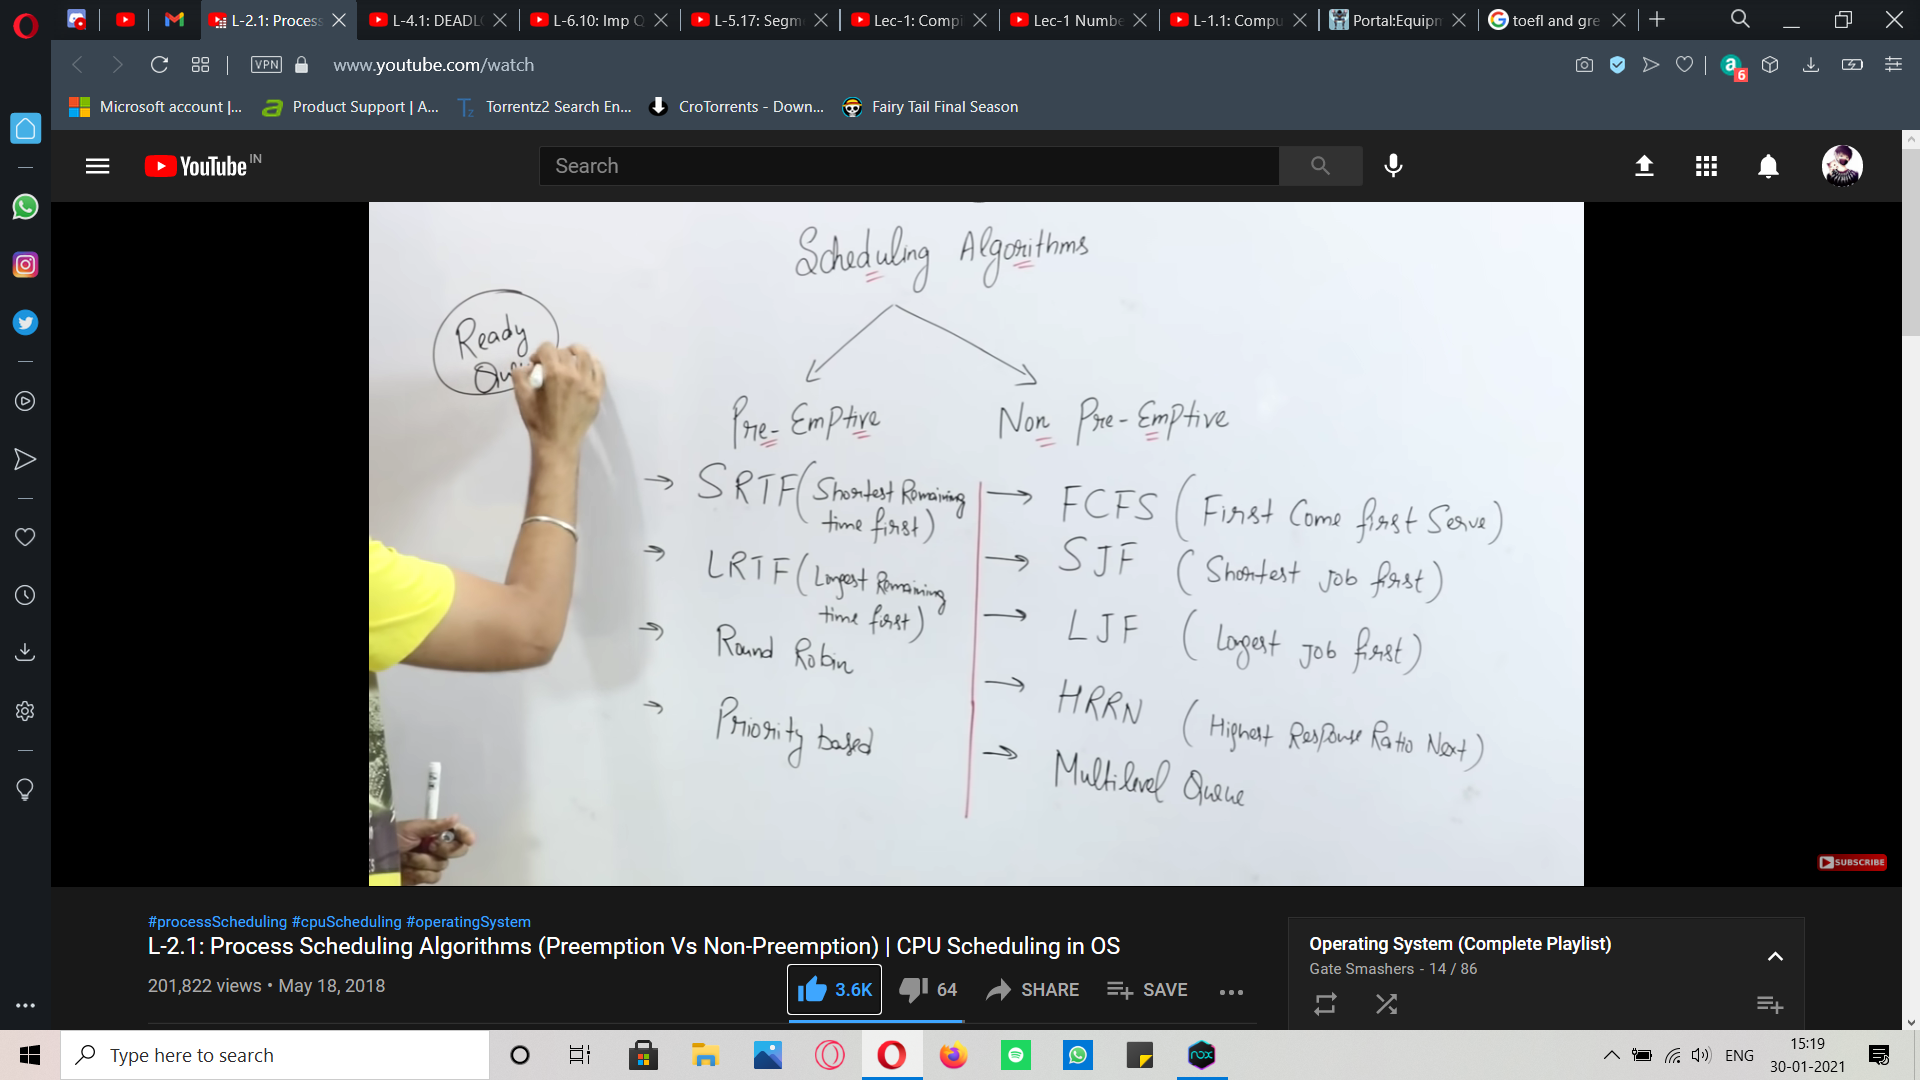 L-2.1: Process
L-4.1: DEADL
L-6.10: Imp Q
L-5.17: Segm
Lec-1: Comp
Lec-1 Numbe
L-1.1: Compu
Portal:Equipm
toefl and gre
VPN
www.youtube.com/watch
6
Microsoft account |...
Product Support | A...
Tz
Torrentz2 Search En...
CroTorrents - Down...
Fairy Tail Final Season
YouTube IN
Search
Scheduling Algorithms
Ready
Pre-Emptive
Non Pre-Emptive
SRTF (Shortest Remaining
time first)
FCFS (First Come first Serve)
SJF (Shortest Job first)
LRTF (Longest Remaining
time first)
LJF (Longest Job first)
Round Robin
HRRN (Highest Response Ratio Next)
Priority based
Multilevel Queue
SUBSCRIBE
#processScheduling #cpuScheduling #operatingSystem
L-2.1: Process Scheduling Algorithms (Preemption Vs Non-Preemption) | CPU Scheduling in OS
201,822 views • May 18, 2018
3.6K
64
SHARE
SAVE
Operating System (Complete Playlist)
Gate Smashers - 14 / 86
Type here to search
nox
ENG
15:19
30-01-2021